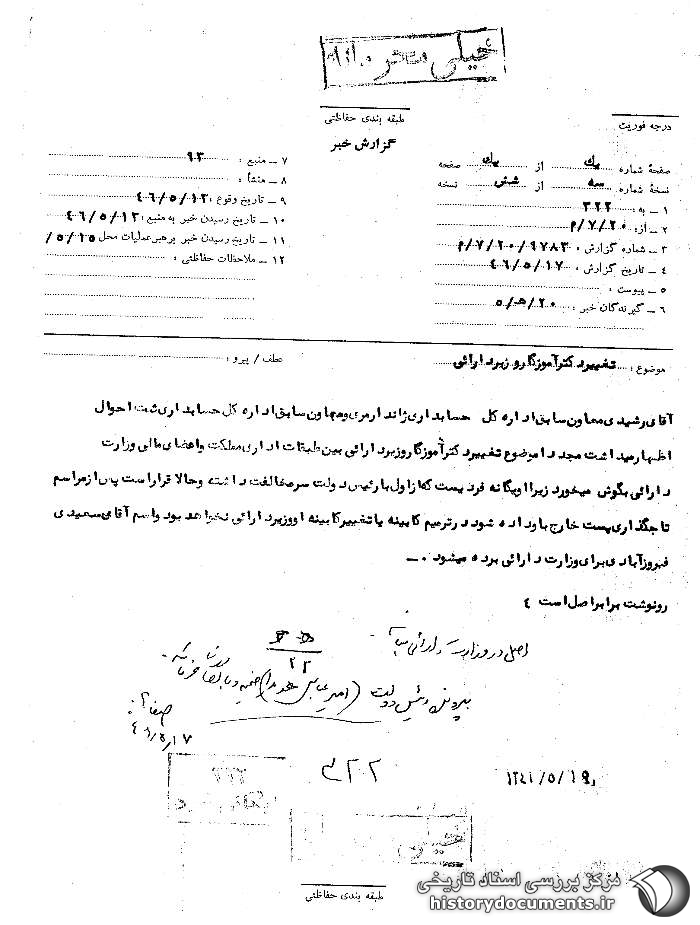 خیلی محرمانه
طبقه بندی حفاظتی
درجه فوریت
گزارش خبر
صفحهٔ شماره یک از یک صفحه
نسخهٔ شماره سه از شش نسخه
۱ ـ به : ۳۲۲
۲ ـ از : ۲۰/۷/م
۳ ـ شماره گزارش : ۹۷۸۳/۲۰/۷/م
۴ ـ تاریخ گزارش : ۴۶/۵/۱۷
۵ ـ پیوست :
۶ ـ گیرندگان خبر : ۲۰/هـ/۵
۷ ـ منبع : ۹۳
۸ ـ منشأ :
۹ ـ تاریخ وقوع : ۴۶/۵/۱۲
۱۰ ـ تاریخ رسیدن خبر به منبع : ۴۶/۵/۱۳
۱۱ ـ تاریخ رسیدن خبر برهبر عملیات محل ۵/۱۵/
۱۲ ـ ملاحظات حفاظتی :
موضوع : تغییردکترآموزگاروزیردارائی
عطف / پیرو :
آقای رشیدی معاون سابق اداره کل حسابداری ژاندارمری ومعاون سابق اداره کل حسابداری ثبت احوال
اظهارمیداشت مجددا موضوع تغییردکترآموزگاروزیردارائی بین طبقات اداری مملکت واعضای مالی وزارت
دارائی بگوش میخورد زیرااویگانه فردیست که ازاول بارئیس دولت سرمخالفت داشته وحالا قراراست پس ازمراسم
تاجگذاری پست خارج باوداده شود درترمیم کابینه یاتغییرکابینه اووزیردارائی نخواهدبود واسم آقای سعیدی
فیروزآبادی برای وزارت دارائی برده میشود ۰ ــ
رونوشت برابراصل است ٤
اصل در وزارت دارائی
۲۲
پرونده رئیس دولت (امیرعباس هویدا) ضمیمه و
۴۶/۵/۱۷
۳۲۲
۱۳۴۶/۵/۱۹
۳۲۲
طبقه بندی حفاظتی
مرکز بررسی اسناد تاریخی
historydocuments.ir